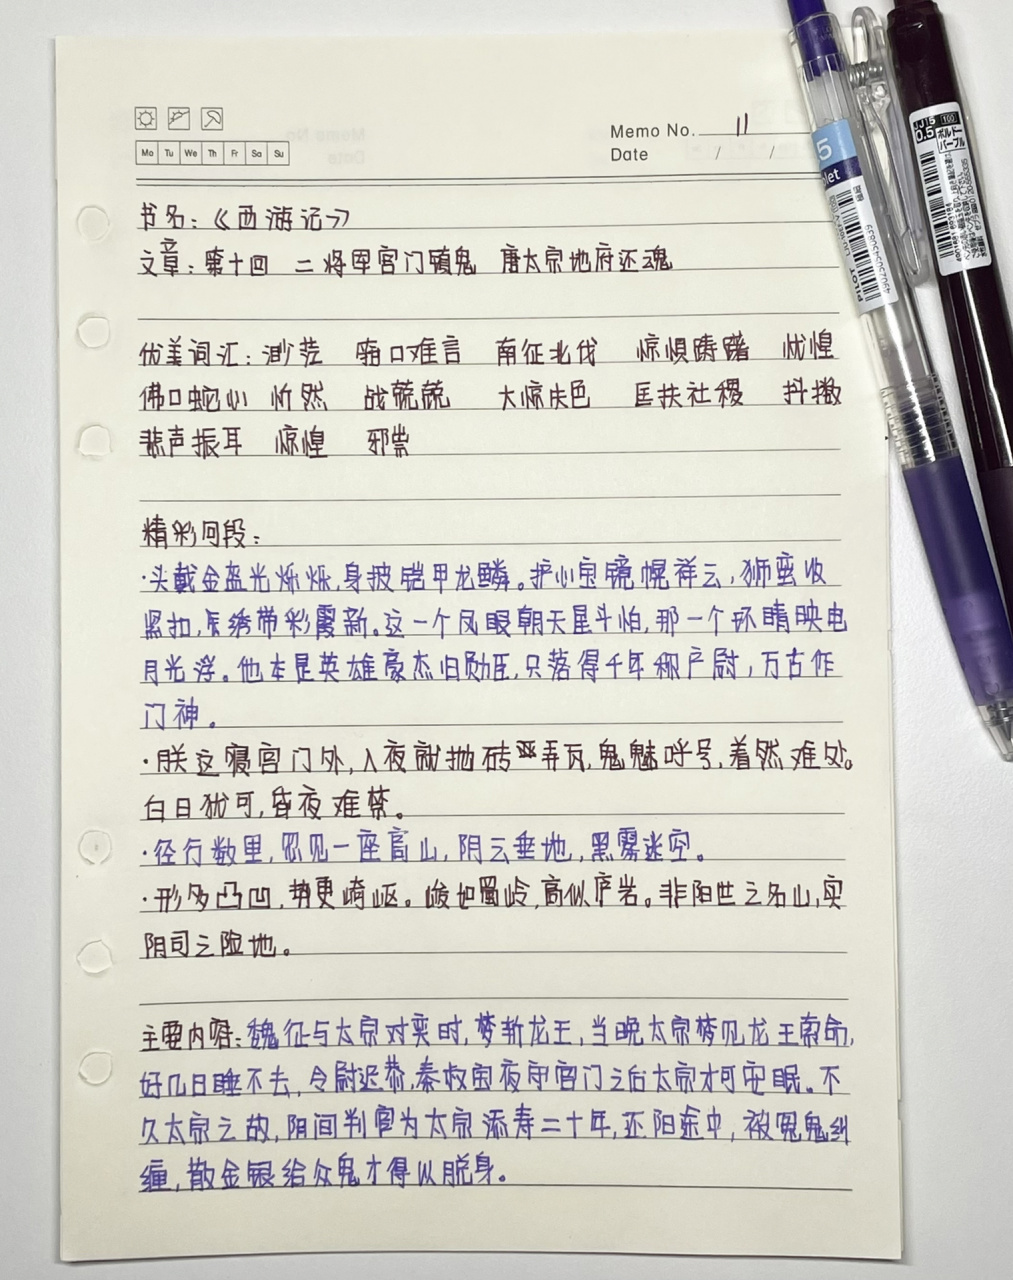 Memo No. 11
Mo Tu We Th Fr Sa Su
Date / /
书名:《西游记》
文章:第十回 二将军宫门镇鬼 唐太宗地府还魂
优美词汇:渺茫 箝口难言 南征北伐 惊惧踌躇 忧惶
佛口蛇心 忻然 战兢兢 大惊失色 匡扶社稷 抖擞
悲声振耳 惊惶 邪祟
精彩句段:
·头戴金盔光烁烁,身披铠甲龙鳞。护心宝镜幌祥云,狮蛮收
紧扣,绣带彩霞新。这一个凤眼朝天星斗怕,那一个环睛映电
月光浮。他本是英雄豪杰旧勋臣,只落得千年称户尉,万古作
门神。
·朕这寝宫门外,入夜就抛砖弄瓦,鬼魅呼号,着然难处。
白日犹可,昏夜难禁。
·径行数里,忽见一座高山,阴云垂地,黑雾迷空。
·形多凸凹,势更崎岖。峻如蜀岭,高似庐岩。非阳世之名山,实
阴司之险地。
主要内容:魏征与太宗对奕时,梦斩龙王,当晚太宗梦见龙王索命,
好几日睡不去,令尉迟恭,秦叔宝夜守宫门之后太宗才可安眠。不
久太宗之故,阴间判官为太宗添寿二十年,还阳途中,被冤鬼纠
缠,散金银给众鬼才得以脱身。
JJ15
0.5
100
ボルドー
パープル
PILOT